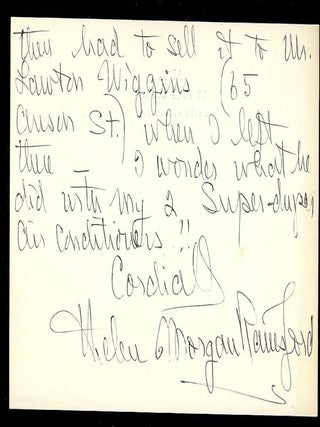 then had to sell it to Mr.
Lawton Wiggins (65
Church St.) when I left
there – I wonder what he
did with my 2 Super-duper
air conditioners!!
Cordially
Helen Morgan